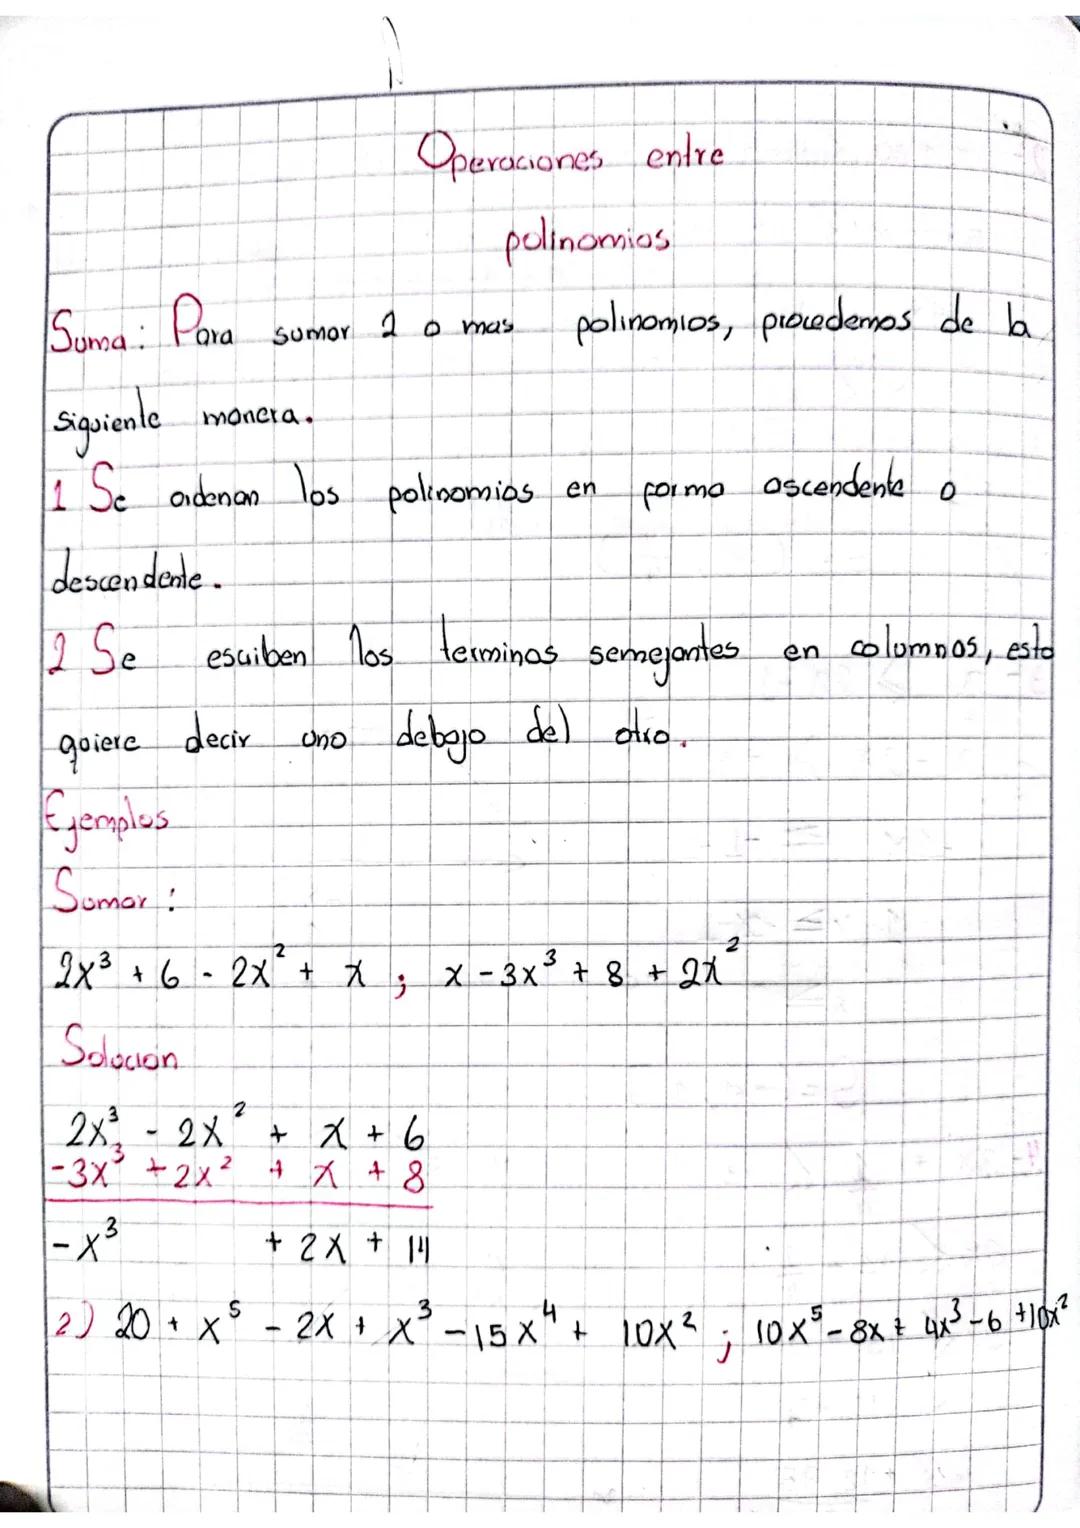 Operaciones entre
polinomios
Suma: Para sumar 2 o mas polinomios, procedemos de la
siguiente manera.
1 Se ordenan los polinomios en forma ascendente o
descendente.
2 Se escriben los terminos semejantes en columnas, esto
quiere decir uno debajo del otro.
Ejemplos
Sumar:
2x³ + 6 - 2x² + x ; x - 3x³ + 8 + 2x²
Solucion
2x³ - 2x² + x + 6
-3x³ + 2x² + x + 8
-x³ + 2x + 14
2) 20 + x⁵ - 2x + x³ - 15x⁴ + 10x² ; 10x⁵ - 8x + 4x³ - 6 + 10x²